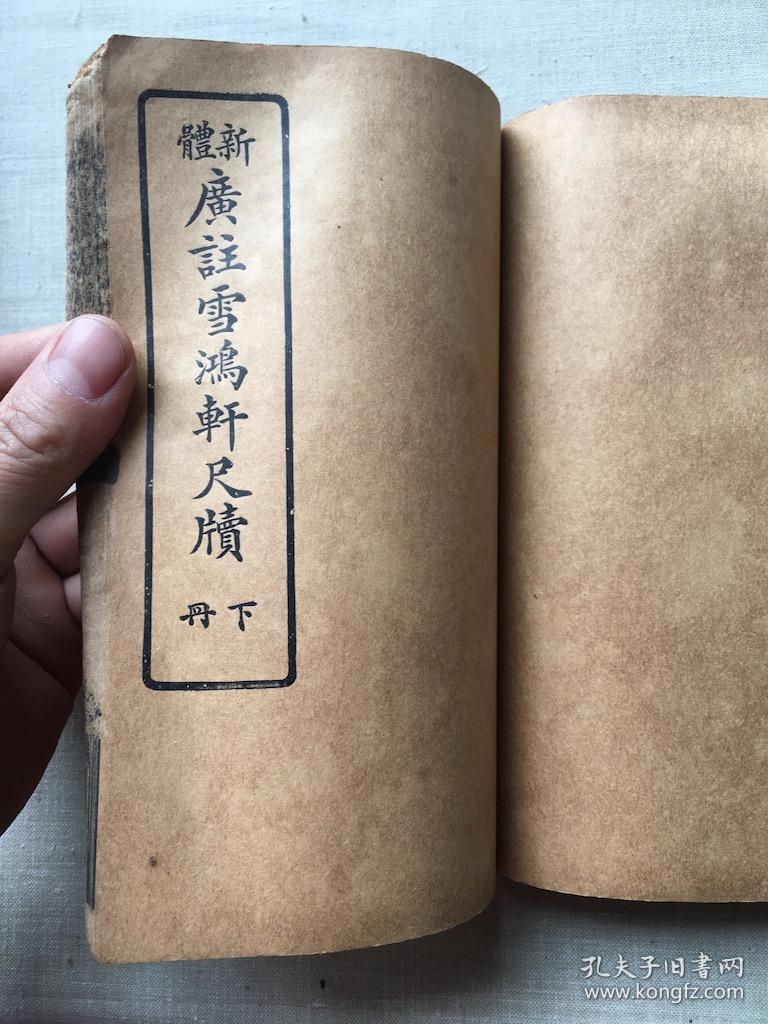 新體
廣註雪鴻軒尺牘
下冊
孔夫子旧書网
www.kongfz.com